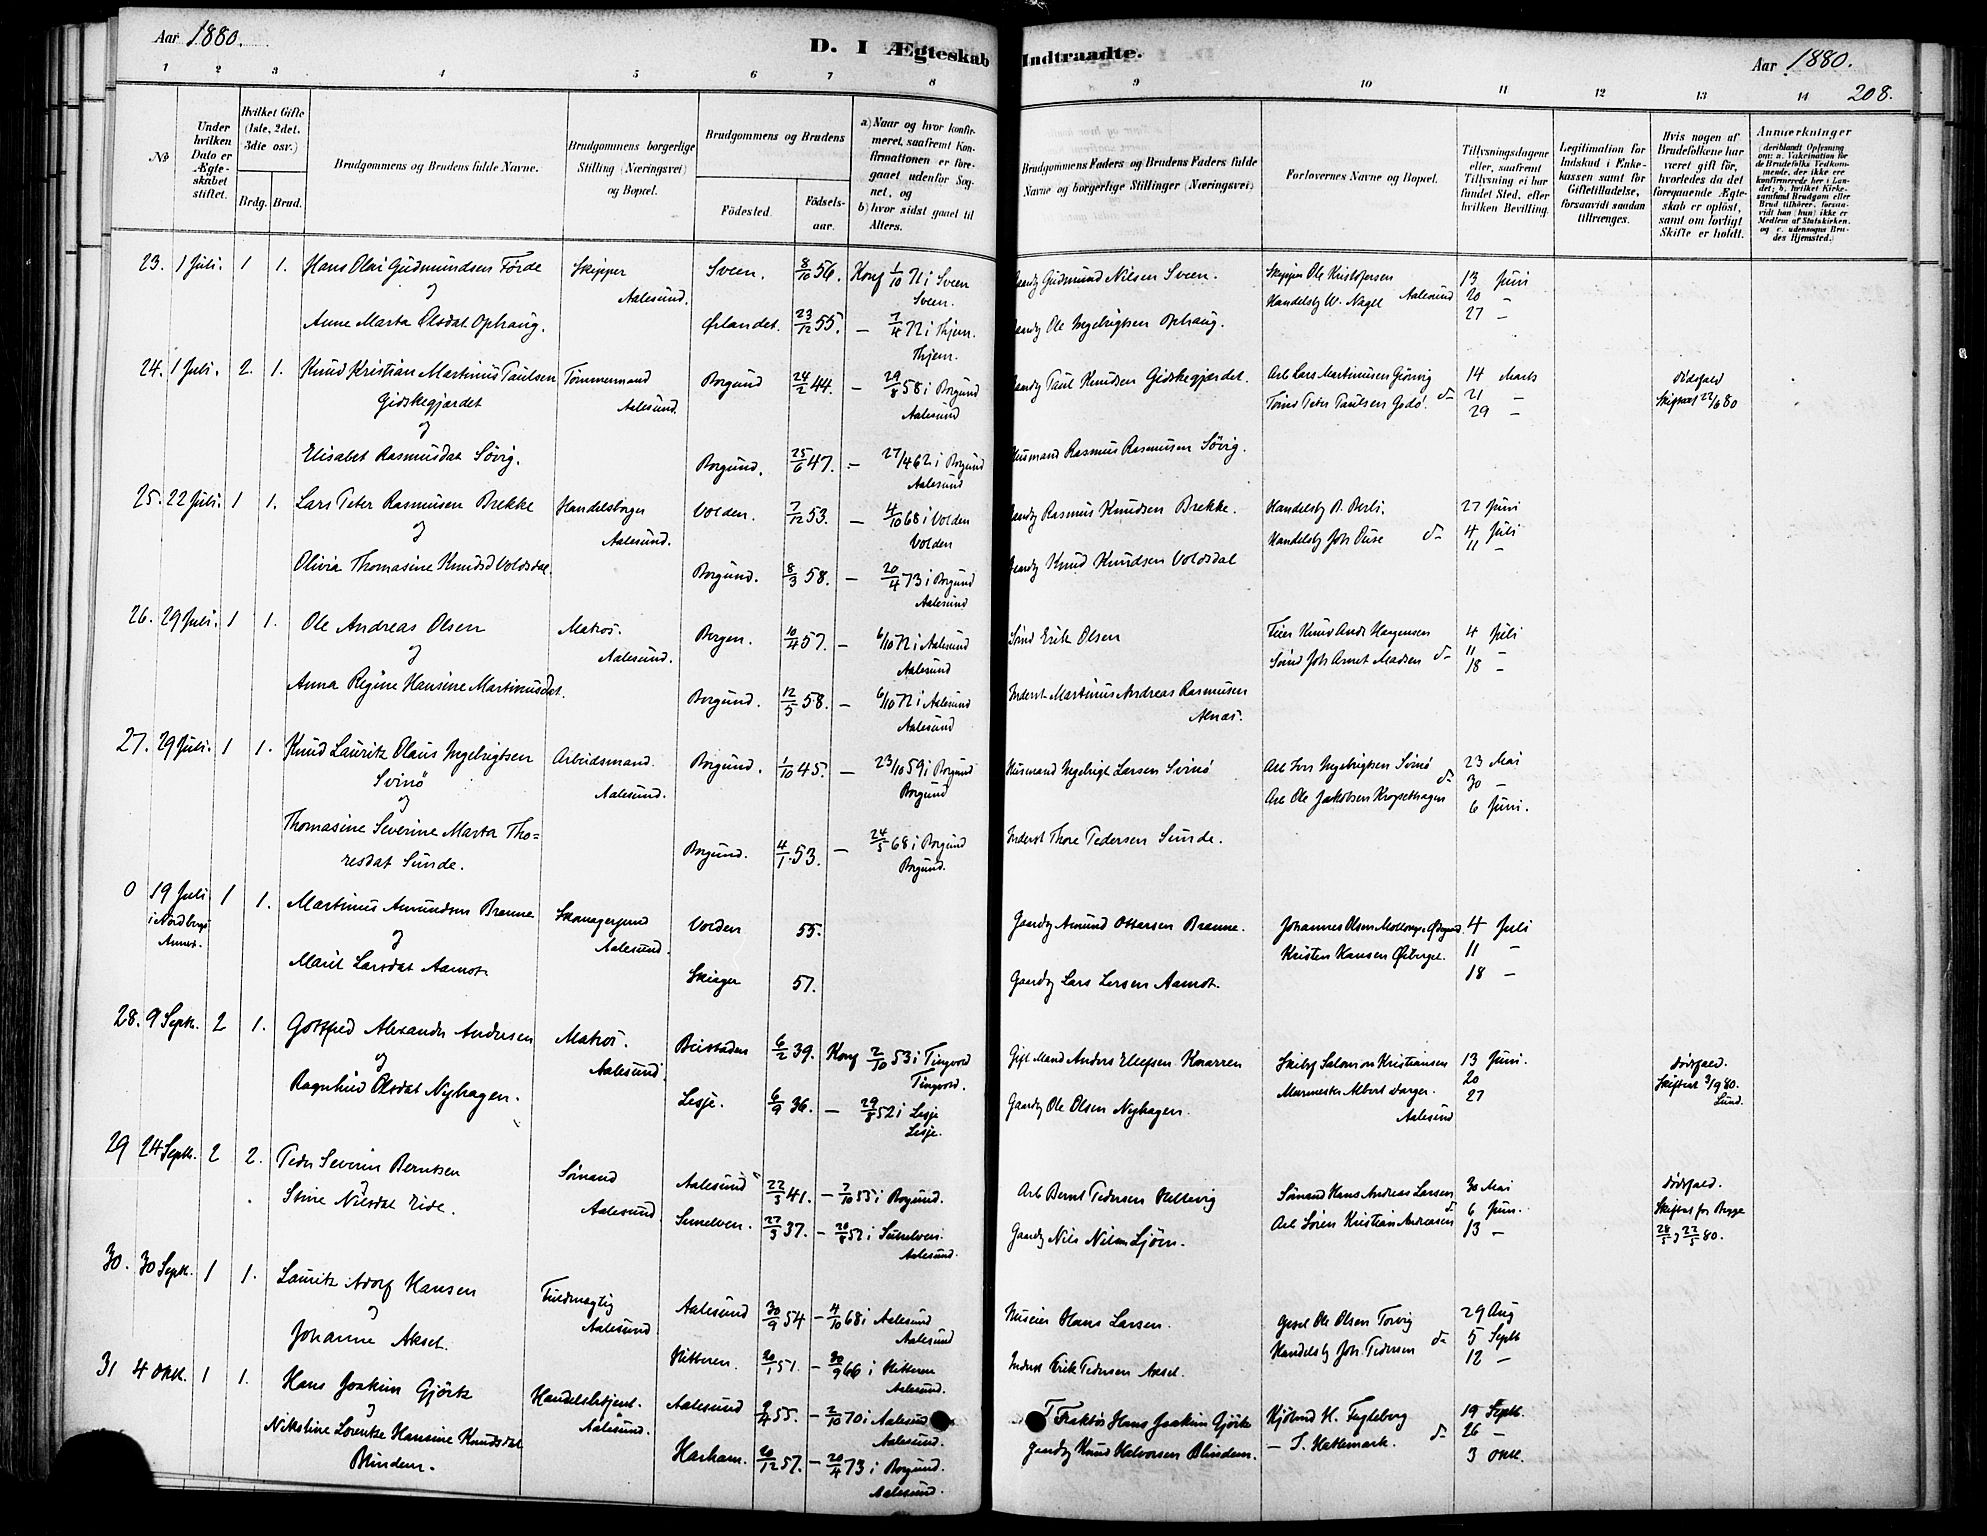 Aar 1880.
D. I Ægteskab Indtraadte.
Aar 1880.
208.
1 2 3 4 5 6 7 8 9 10 11 12 13 14
No
Under hvilken Dato er Ægteskabet stiftet.
Hvilket Gifte (1ste, 2det, 3die osv.)
Brdg. Brud.
Brudgommens og Brudens fulde Navne.
Brudgommens borgerlige Stilling (Næringsvei) og Bopæl.
Brudgommens og Brudens
Födested.
Födselsaar.
a) Naar og hvor konfirmeret, saafremt Konfirmationen er foregaaet udenfor Sognet, og
b) hvor sidst gaaet til Alters.
Brudgommens Faders og Brudens Faders fulde Navne og borgerlige Stillinger (Næringsvei)
Forlovernes Navne og Bopæl.
Tillysningsdagene eller, saafremt Tillysning ei har fundet Sted, efter hvilken Bevilling.
Legitimation for Indskud i Enkekassen samt for Giftetilladelse, forsaavidt saadan tiltrænges.
Hvis nogen af Brudefolkene har været gift för, hvorledes da det foregaaende Ægteskab er oplöst, samt om lovligt Skifte er holdt.
Anmærkninger (deriblandt Oplysning om: a. Vakcination for de Brudefolks Vedkommende, der ikke ere konfirmerede her i Landet; b. hvilket Kirkesamfund Brudgom eller Brud tilhörer, forsaavidt han (hun) ikke er Medlem af Statskirken, og c. udensogns Brudes Hjemsted.)
23. 1 Juli. 1 1. Hans Olai Gudmundsen Förde Skipper Sveen. 8/10 56. Konf 1/10 71 i Sveen Gaardb Gudmund Nilsen Sveen. Skipper Ole Kristofersen 13 Juni
og Aalesund. Sveen. Handelsb W. Nagel Aalesund 20 -
Anne Marta Olsdat Ophaug. Ørlandet. 23/12 55. - 7/4 72 i Thjem. Gaardb Ole Ingebrigtsen Ophaug. 27 -
Thjem.
24. 1 Juli. 2. 1. Knud Kristian Martinus Paulsen Tømmermand Borgund 24/2 44. - 29/8 58 i Borgund Gaardb Paul Knudsen Gidskegjerdet. Arb Lars Martinusen Gjörvig 14 Marts dödsfald
Gidskegjærdet Aalesund. Aalesund Tömd Peter Paulsen Godö. do 21 - Skifteatt 22/6 80
og 29 -
Elisabet Rasmusdat Sövig. Borgund. 25/6 47. - 27/4 62 i Borgund Husmand Rasmus Rasmusen Sövig.
Aalesund
25. 22 Juli. 1 1. Lars Peter Rasmusen Brekke Handelsborger Volden. 7/12 53. - 4/10 68 i Volden Gaardb Rasmus Knudsen Brekke. Handelsb P. Berli. 27 Juni
og Aalesund. Volden Handelsb Joh. Duse do 4 Juli
Olivia Thomasine Knudsd Voldsdal. Borgund. 8/3 58. - 20/4 73 i Borgund Gaardb Knud Knudsen Voldsdal 11 -
Aalesund
26. 29 Juli. 1 1. Ole Andreas Olsen Matros. Bergen. 10/4 57. - 6/10 72 i Aalesund Sömd Erik Olsen 4 Juli
og Aalesund. Aalesund Sömd Joh. Arnet Madsen do 11 -
Anna Regine Hansine Martinusdat. Borgund. 12/5 58. - 6/10 72 i Aalesund Inderst Martinus Andreas Rasmusen 18 -
Aalesund Alnæs.
27. 29 Juli. 1 1. Knud Lauritz Olaus Ingebrigtsen Arbeidsmand. Borgund. 1/10 45. - 23/10 59 i Borgund Husmand Ingebrigt Larsen Svinö Arb Iver Ingebrigtsen Svinö 23 Mai
Svinö Aalesund. Borgund do 30 -
og Arb Ole Jakobsen 6 Juni.
Thomasine Severine Marta Tho=
resdat Sunde. Borgund. 4/1 53. - 24/5 68 i Borgund Inderst Thore Pedersen Sunde.
Borgund.
0 19 Juli 1 1. Martinus Amundsen Brenne Skomagersvend Volden 55. Gaardb Amund Ottersen Brenne. Johannes Olsen 4 Juli
i Nordberg og Aalesund. Kristen Hansen 11 -
Annex. Marit Larsdat Aamot. Skiager 57. Gaardb Lars Larsen Aamot. 18 -
28. 9 Septb. 2 1. Gottfred Alexander Andersen Matros. Beitstaden 6/2 39. Konf 2/10 53 i Tingvold Gift Mand Anders Ellefsen Knarren Salomon Kristiansen 13 Juni. dödsfald.
og Aalesund. Tingvold. Murmester Albert Warger. 20 Skifteat 3/9 80.
Ragnhild Olsdat Nyhagen. Lesje. 6/9 36. - 29/8 52 i Lesje Gaardb Ole Olsen Nyhagen. Aalesund 27 Lund.
Lesje.
29 24 Septb. 2 2. Peder Severin Berntsen Sömand Aalesund 22/3 41. - 2/10 55 i Borgund. Arb Bernt Pedersen Hellevig Sömand Hans Andreas Larsen 30 Mai dödsfald.
og Aalesund do 6 Juni. Skifteat for Begge
Stine Nilsdat Eide. Sunelven. 27/3 37. - 20/6 52 i Sunelven. Gaardb Nils Nilsen Ljöen. Arb Sören Kristian Andreasen 13 - 28/5 og 22/5 80.
Aalesund.
30. 30 Septb. 1 1. Lauritz Adolf Hansen Fuldmægtig Aalesund 30/9 54 - 4/10 68 i Aalesund Huseier Hans Larsen. Gesel Ole Olsen Torvig 29 Aug
og Aalesund Aalesund Handelsb Joh. Pedersen do 5 Septb
Johanne Aksel. Hitteren. 20/1 51. - 30/9 66 i Hitteren Inderst Erik Pedersen Aksel. 12 -
Aalesund.
31 4 Oktb. 1 1. Hans Joakim Gjörtz Handelsbetjent. Aalesund 9/4 55. - 2/10 70 i Aalesund Fraktör Hans Joakim Gjörtz Kjöbmd H. Fygleberg 19 Septb.
og Aalesund. Aalesund. - S. Hattemark. do 26 -
Nikoline Lorentze Hansine Knudsdat
Blindem. Harham. 20/12 57. - 20/4 73 i Borgund. Gaardb Knud Halvorsen Blindem. 3 Oktb.
Aalesund.